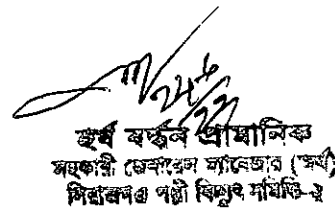 ২৪/৬/২২
হর্ষ বর্দ্ধন প্রামানিক
সহকারী জেনারেল ম্যানেজার (অর্থ)
সিরাজগঞ্জ পল্লী বিদ্যুৎ সমিতি-২